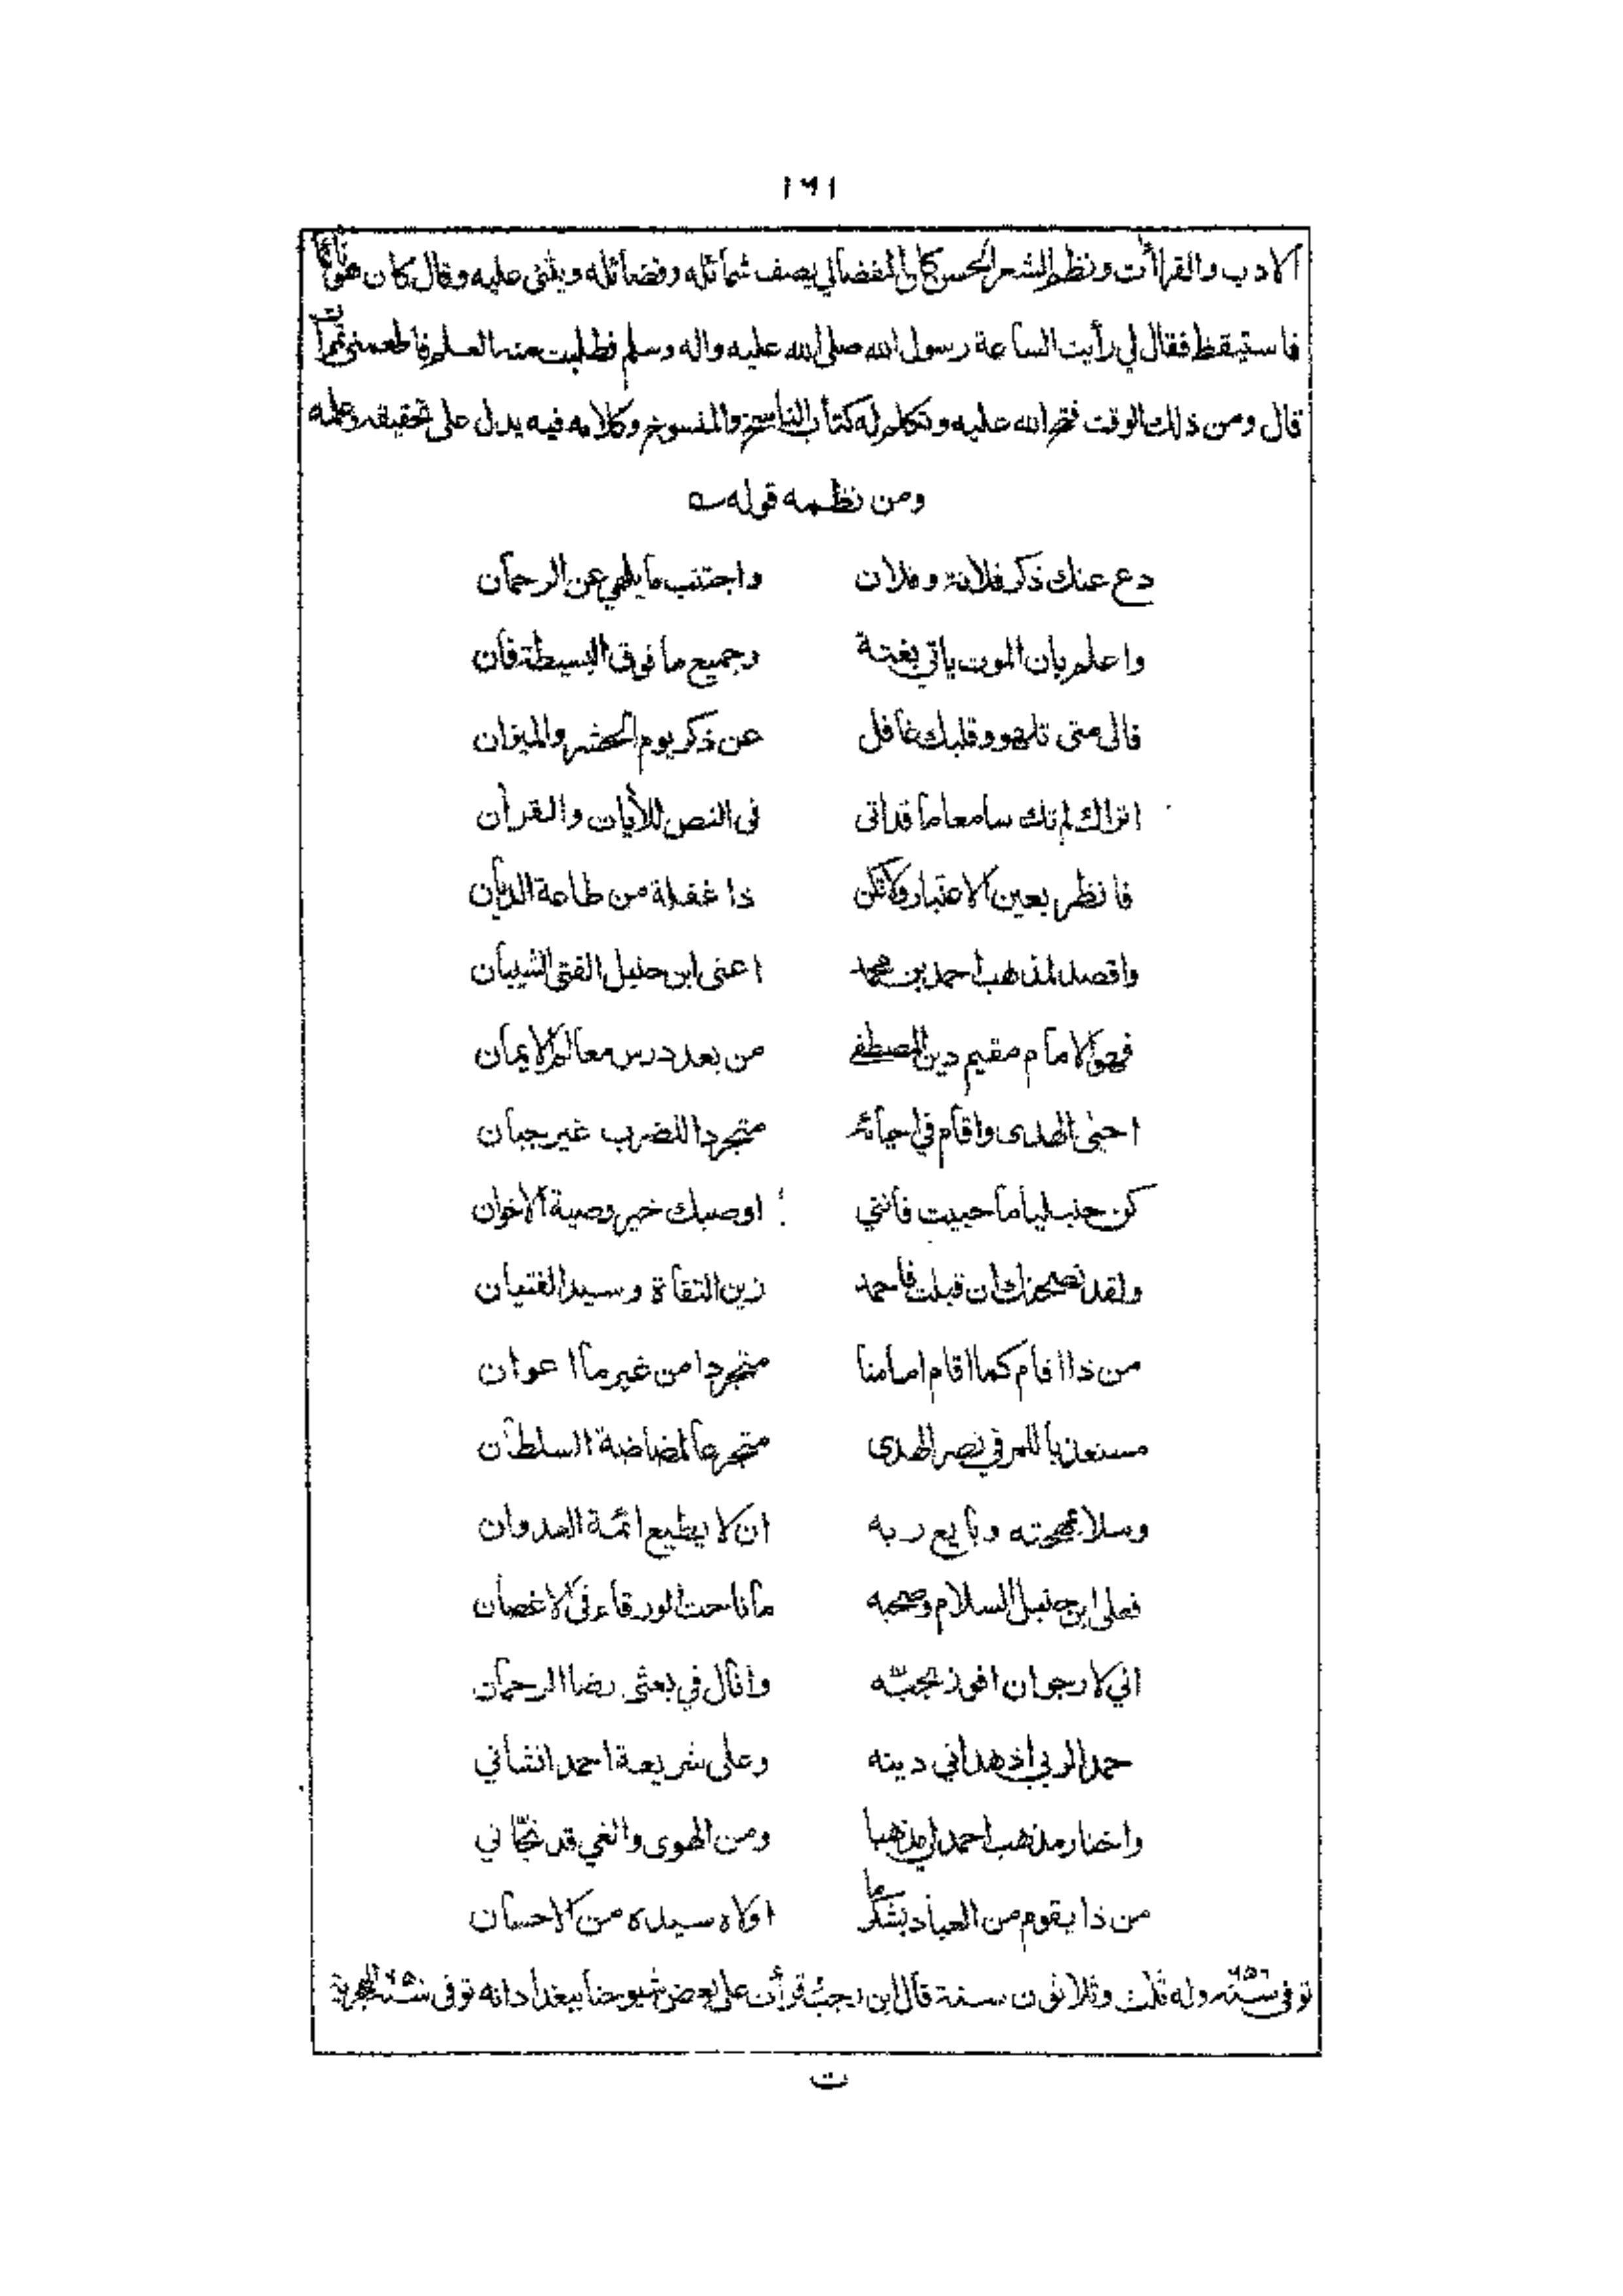 ١٦١
الادب والقراأت ونظم الشعر الحسن كان المفضالي يصف شمائله وفضائله ويثنى عليه وقال كان
فاستيقظ فقال لي رأيت الساعة رسول الله صلى الله عليه واله وسلم فطلبت منه العلم فاطعمنى تمرات
قال ومن ذلك الوقت فتح الله عليه وتكلم له كتاب الناسخ والمنسوخ وكلامه فيه يدل على تحقيقه وعلمه
ومن نظمه قوله
دع عنك ذكر فلانة وفلان واجتنب ما يلهي عن الرحمان
واعلم بان الموت ياتي بغتة وجميع ما فوق البسيطة فان
فالى متى تلهو وقلبك غافل عن ذكر يوم الحشر والميزان
اتراك لم تك سامعا ما قد اتى فى النص للأيات والقرأن
فانظر بعين الاعتبار ولا تكن ذا غفلة من طاعة الديان
واقصد لمذهب احمد بن محمد اعنى ابن حنبل الفتى الشيبان
فهو الامام مقيم دين المصطفى من بعد درس معالم الايمان
احيى الهدى واقام في احيائه متجردا للضرب غير جبان
كن حنبليا ما حييت فانني اوصيك خير وصية الاخوان
ولقد نصحتك ان قبلت فاحمد زين التقاة وسيد الفتيان
من ذا اقام كما اقام امامنا متجردا من غير ما اعوان
مستعذبا للمر في نصر الهدى متجرعا لمضاضة السلطان
وسلا بمهجته وبايع ربه ان لا يطيع ائمة العدوان
فعلى ابن حنبل السلام وصحبه ما ناحت الورقاء فى الاغصان
اني لارجو ان افوز بحبه وانال في بعثى رضا الرحمان
حمدا لربي اذ هداني دينه وعلى شريعة احمد انشاني
واختار مذهب احمد لي مذهبا ومن الهوى والغي قد نجاني
من ذا يقوم من العباد بشكر ما اولاه سيده من الاحسان
توفى سنة ٦٥٦ وله ثلث وثلاثون سنة قال ابن رجب قرأت على بعض شيوخنا ببغداد انه توفى الهجرية
ت